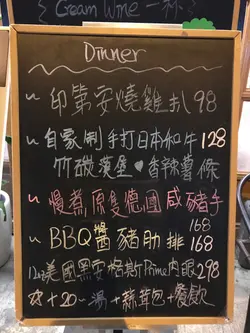 Cream Wine 一杯
Dinner
~ 印第安燒雞扒 98
~ 自家制手打日本和牛 128
竹碳漢堡 ♥ 香辣薯條
~ 慢煮原隻德國咸豬手
168
~ BBQ醬豬肋排 168
美國黑安格斯Prime肉眼 298
+20~ 湯 + 蒜茸包 + 餐飲